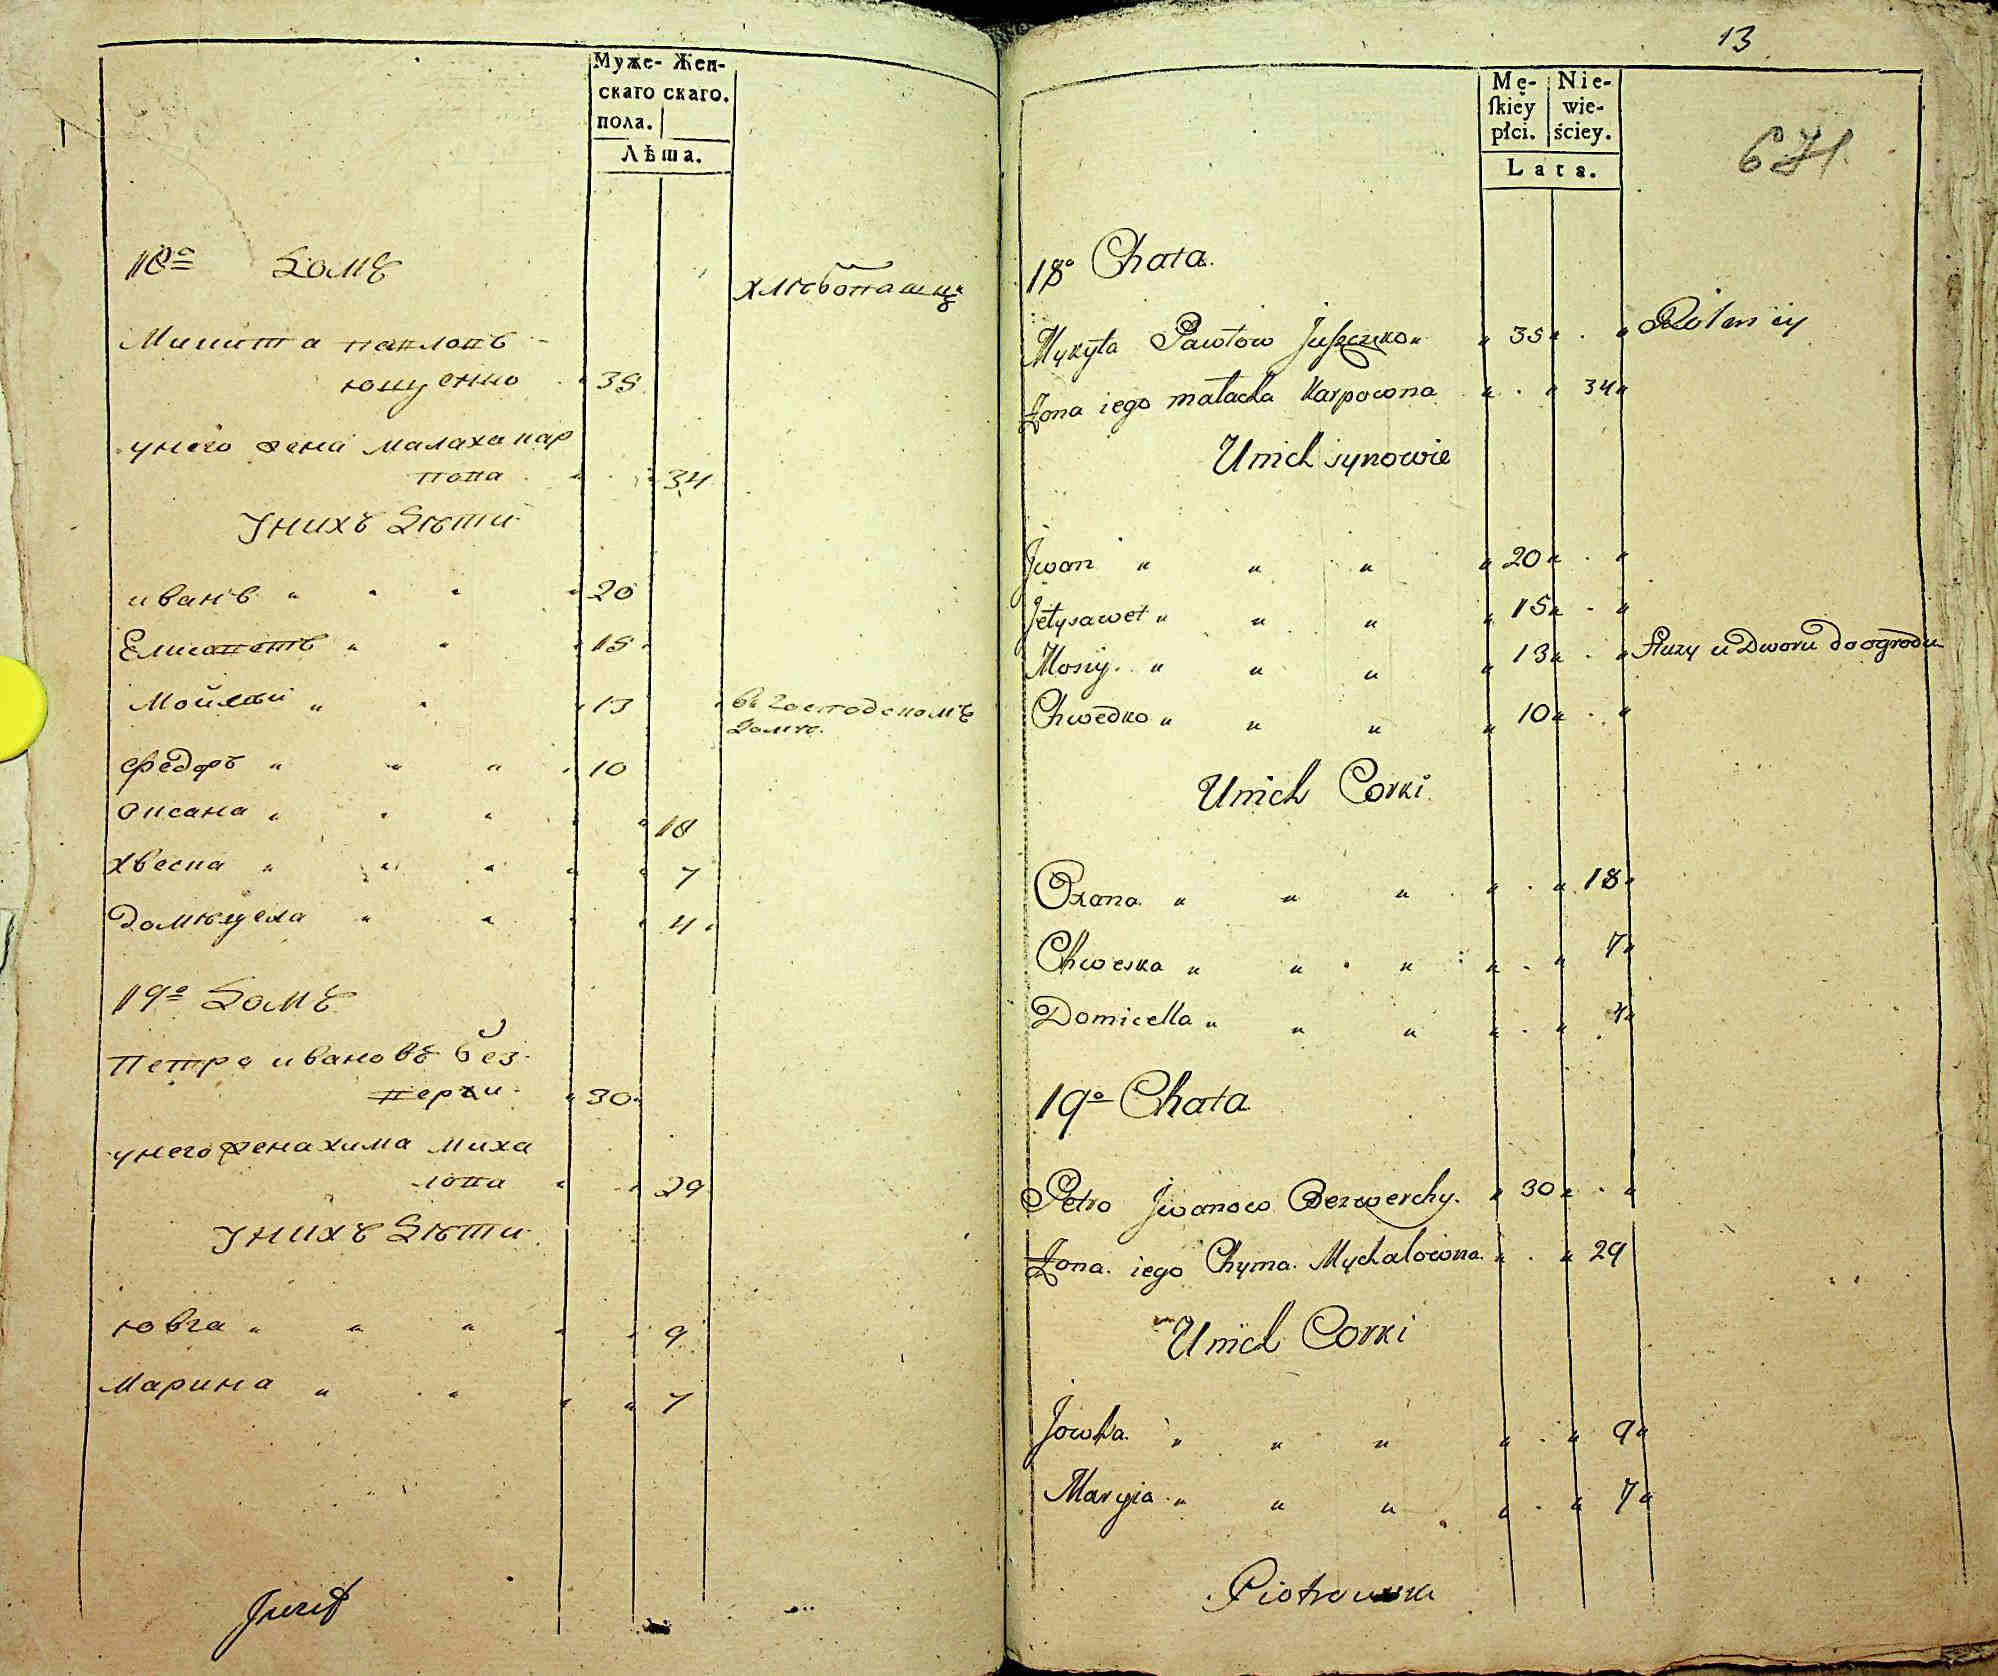 Муже- Жен-
скаго скаго.
пола.
Лѣта.
18º Домъ
хлѣбопашцъ
Микита павловъ
ющенко 35
унего жена малаха кар
пова 34
Унихъ Дѣти
иванъ 20
Елисаветъ 15
Мойсей 13 въ Господскомъ
Домѣ.
Федоръ 10
Оксана 18
Хвеска 7
Домѣцела 4
19º Домъ
Петро ивановъ без
верхи 30
унего жена хима миха
лова 29
Унихъ Дѣти
ювга 9
Марина 7
13
671
Mę- Nie-
skiey wie-
płci. ściey.
Lata.
18º Chata.
Mykyta Pawłow Juszczko 35 Rolniczy
Żona iego małacha Karpowna 34
Unich synowie
Jwan 20
Jełysawet 15
Mosiy 13 Służy u Dworu do ogrodu
Chwedko 10
Unich Corki
Oxana 18
Chweska 7
Domicella 4
19º Chata
Petro Jwanow Bezwerchy. 30
Żona iego Chyma Mychałowna 29
Unich Corki
Jowha 9
Maryia 7